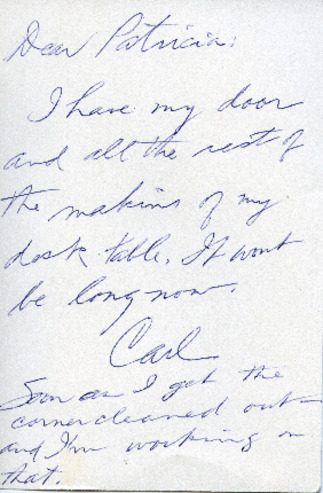 Dear Patricia:
I have my door
and all the rest of
the makins of my
desk table. It wont
be long now.
Carl
Soon as I get the
corner cleaned out
and I'm working on
that.